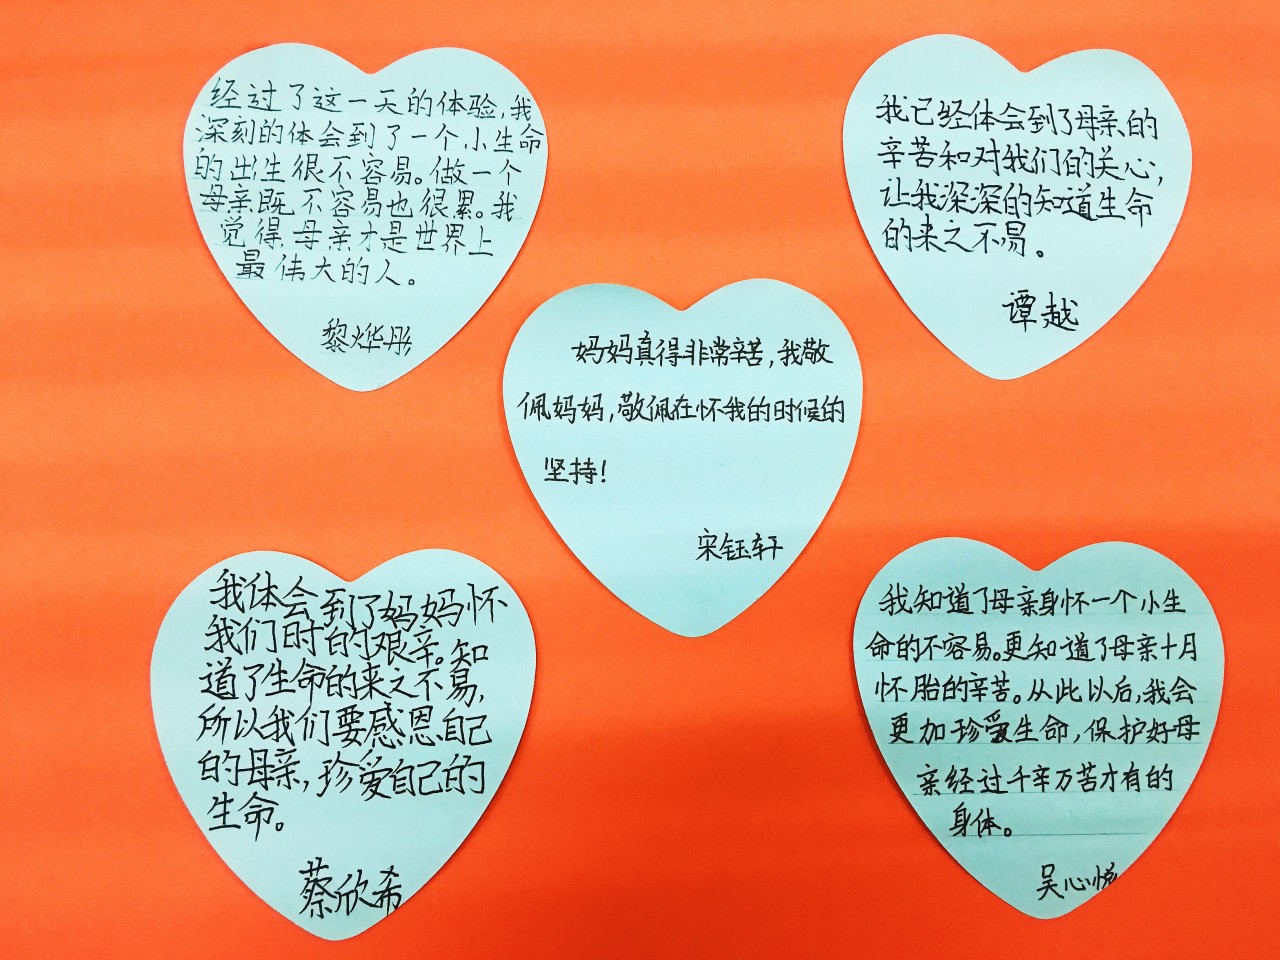 经过了这一天的体验,我
深刻的体会到了一个小生命
的出生很不容易。做一个
母亲既不容易也很累。我
觉得,母亲才是世界上
最伟大的人。
黎烨彤
我已经体会到了母亲的
辛苦和对我们的关心,
让我深深的知道生命
的来之不易。
谭越
妈妈真得非常辛苦,我敬
佩妈妈,敬佩在怀我的时候的
坚持!
宋钰轩
我体会到了妈妈怀
我们时的艰辛。知
道了生命的来之不易,
所以我们要感恩自己
的母亲,珍爱自己的
生命。
蔡欣希
我知道了母亲身怀一个小生
命的不容易。更知道了母亲十月
怀胎的辛苦。从此以后,我会
更加珍爱生命,保护好母
亲经过千辛万苦才有的
身体。
吴心悦